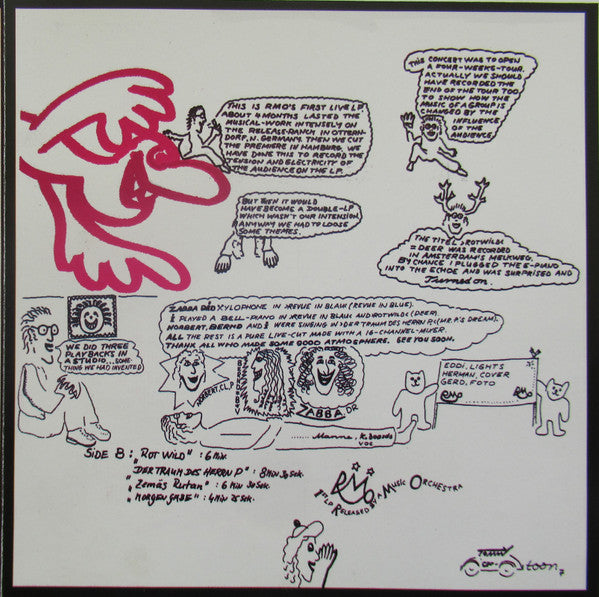 THIS IS RMO'S FIRST LIVE LP.
ABOUT 4 MONTHS LASTED THE
MUSICAL-WORK INTENSELY ON
THE RELEASE-RANCH IN OTTERN-
DORF, N. GERMANY. THEN WE CUT
THE PREMIERE IN HAMBURG. WE
HAVE DONE THIS TO RECORD THE
TENSION AND ELECTRICITY OF
THE AUDIENCE ON THE LP.
THIS CONCERT WAS TO OPEN
A FOUR-WEEKS-TOUR.
ACTUALLY WE SHOULD
HAVE RECORDED THE
END OF THE TOUR TOO
TO SHOW HOW THE
MUSIC OF A GROUP IS
CHANGED BY THE
INFLUENCE
OF THE
AUDIENCE.
BUT THEN IT WOULD
HAVE BECOME A DOUBLE-LP
WHICH WASN'T OUR INTENSION.
ANYWAY WE HAD TO LOOSE
SOME THEMES.
THE TITEL >ROTWILD<
= DEER WAS RECORDED
IN AMSTERDAM'S MELKWEG.
BY CHANCE I PLUGGED THE E-PIANO
INTO THE ECHOE AND WAS SURPRISED AND
Turned on.
WE DID THREE
PLAYBACKS IN
A STUDIO...SOME-
THING WE HAD INVENTED
ZABBA DID XYLOPHONE IN >REVUE IN BLAU< (REVUE IN BLUE).
I PLAYED A BELL-PIANO IN >REVUE IN BLAU< AND >ROTWILD< (DEER).
NORBERT, BERND AND I WERE SINGING IN >DER TRAUM DES HERRN P.< (MR. P.'S DREAM).
ALL THE REST IS A PURE LIVE-CUT MADE WITH A 16-CHANNEL-MIXER.
THANK ALL WHO MADE SOME GOOD ATMOSPHERE. SEE YOU SOON.
NORBERT, CL, P
ZABBA, DR
........ Manne, K.Boards
VOC
EDDI, LIGHTS
HERMAN, COVER
GERD, FOTO
RMO
RMO
SIDE B: "ROT WILD" : 6 Min.
"DER TRAUM DES HERRN P" : 8 Min 30 Sek.
"Zemäs Rutan" : 6 Min 30 Sek.
"MORGEN GABE" : 4 Min 25 Sek.
RMO
1st LP RELEASED BY A MUSIC ORCHESTRA
toon